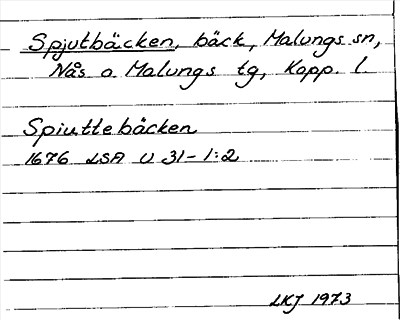 Spjutbäcken, bäck, Malungs sn,
Nås o. Malungs tg, Kopp. l.
Spiuttebäcken
1676 LSA U 31-1:2
LKJ 1973